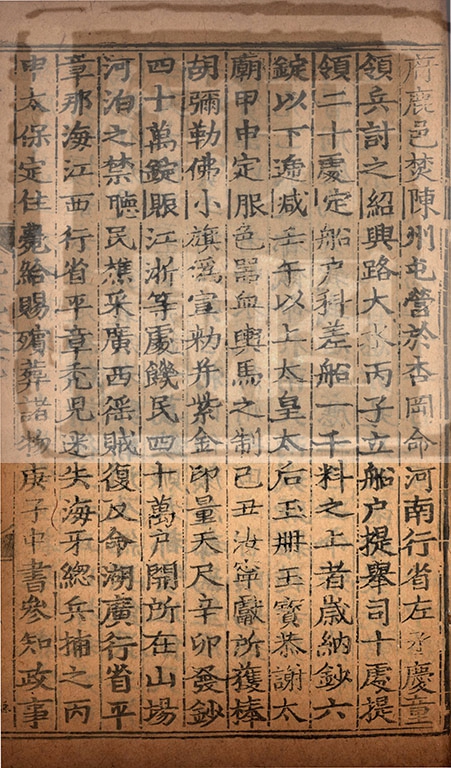 府鹿邑焚陳州屯營於杏岡命河南行省左丞慶童
領兵討之紹興路大水丙子立船户提舉司十處提
領二十處定船户科差船一千料之上者歲納鈔六
錠以下遞減壬午以上太皇太后玉册玉寶恭謝太
廟甲申定服色器皿輿馬之制己丑汝寧獻所獲棒
胡彌勒佛小旗僞宣勑并紫金印量天尺辛卯發鈔
四十萬錠賑江浙等處饑民四十萬户開所在山場
河泊之禁聽民樵采廣西徭賊復反命湖廣行省平
章那海江西行省平章禿兒迷失海牙總兵捕之丙
申太保定住薨給賜殯葬諸物庚子中書參知政事